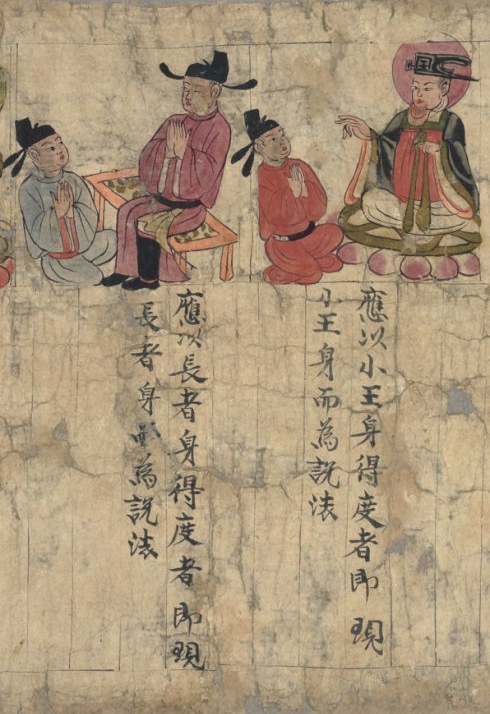 應以小王身得度者即現
小王身而為說法
應以長者身得度者即現
長者身而為說法